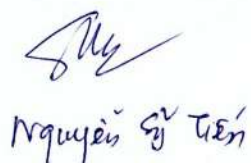 Nguyễn Sỹ Tiến